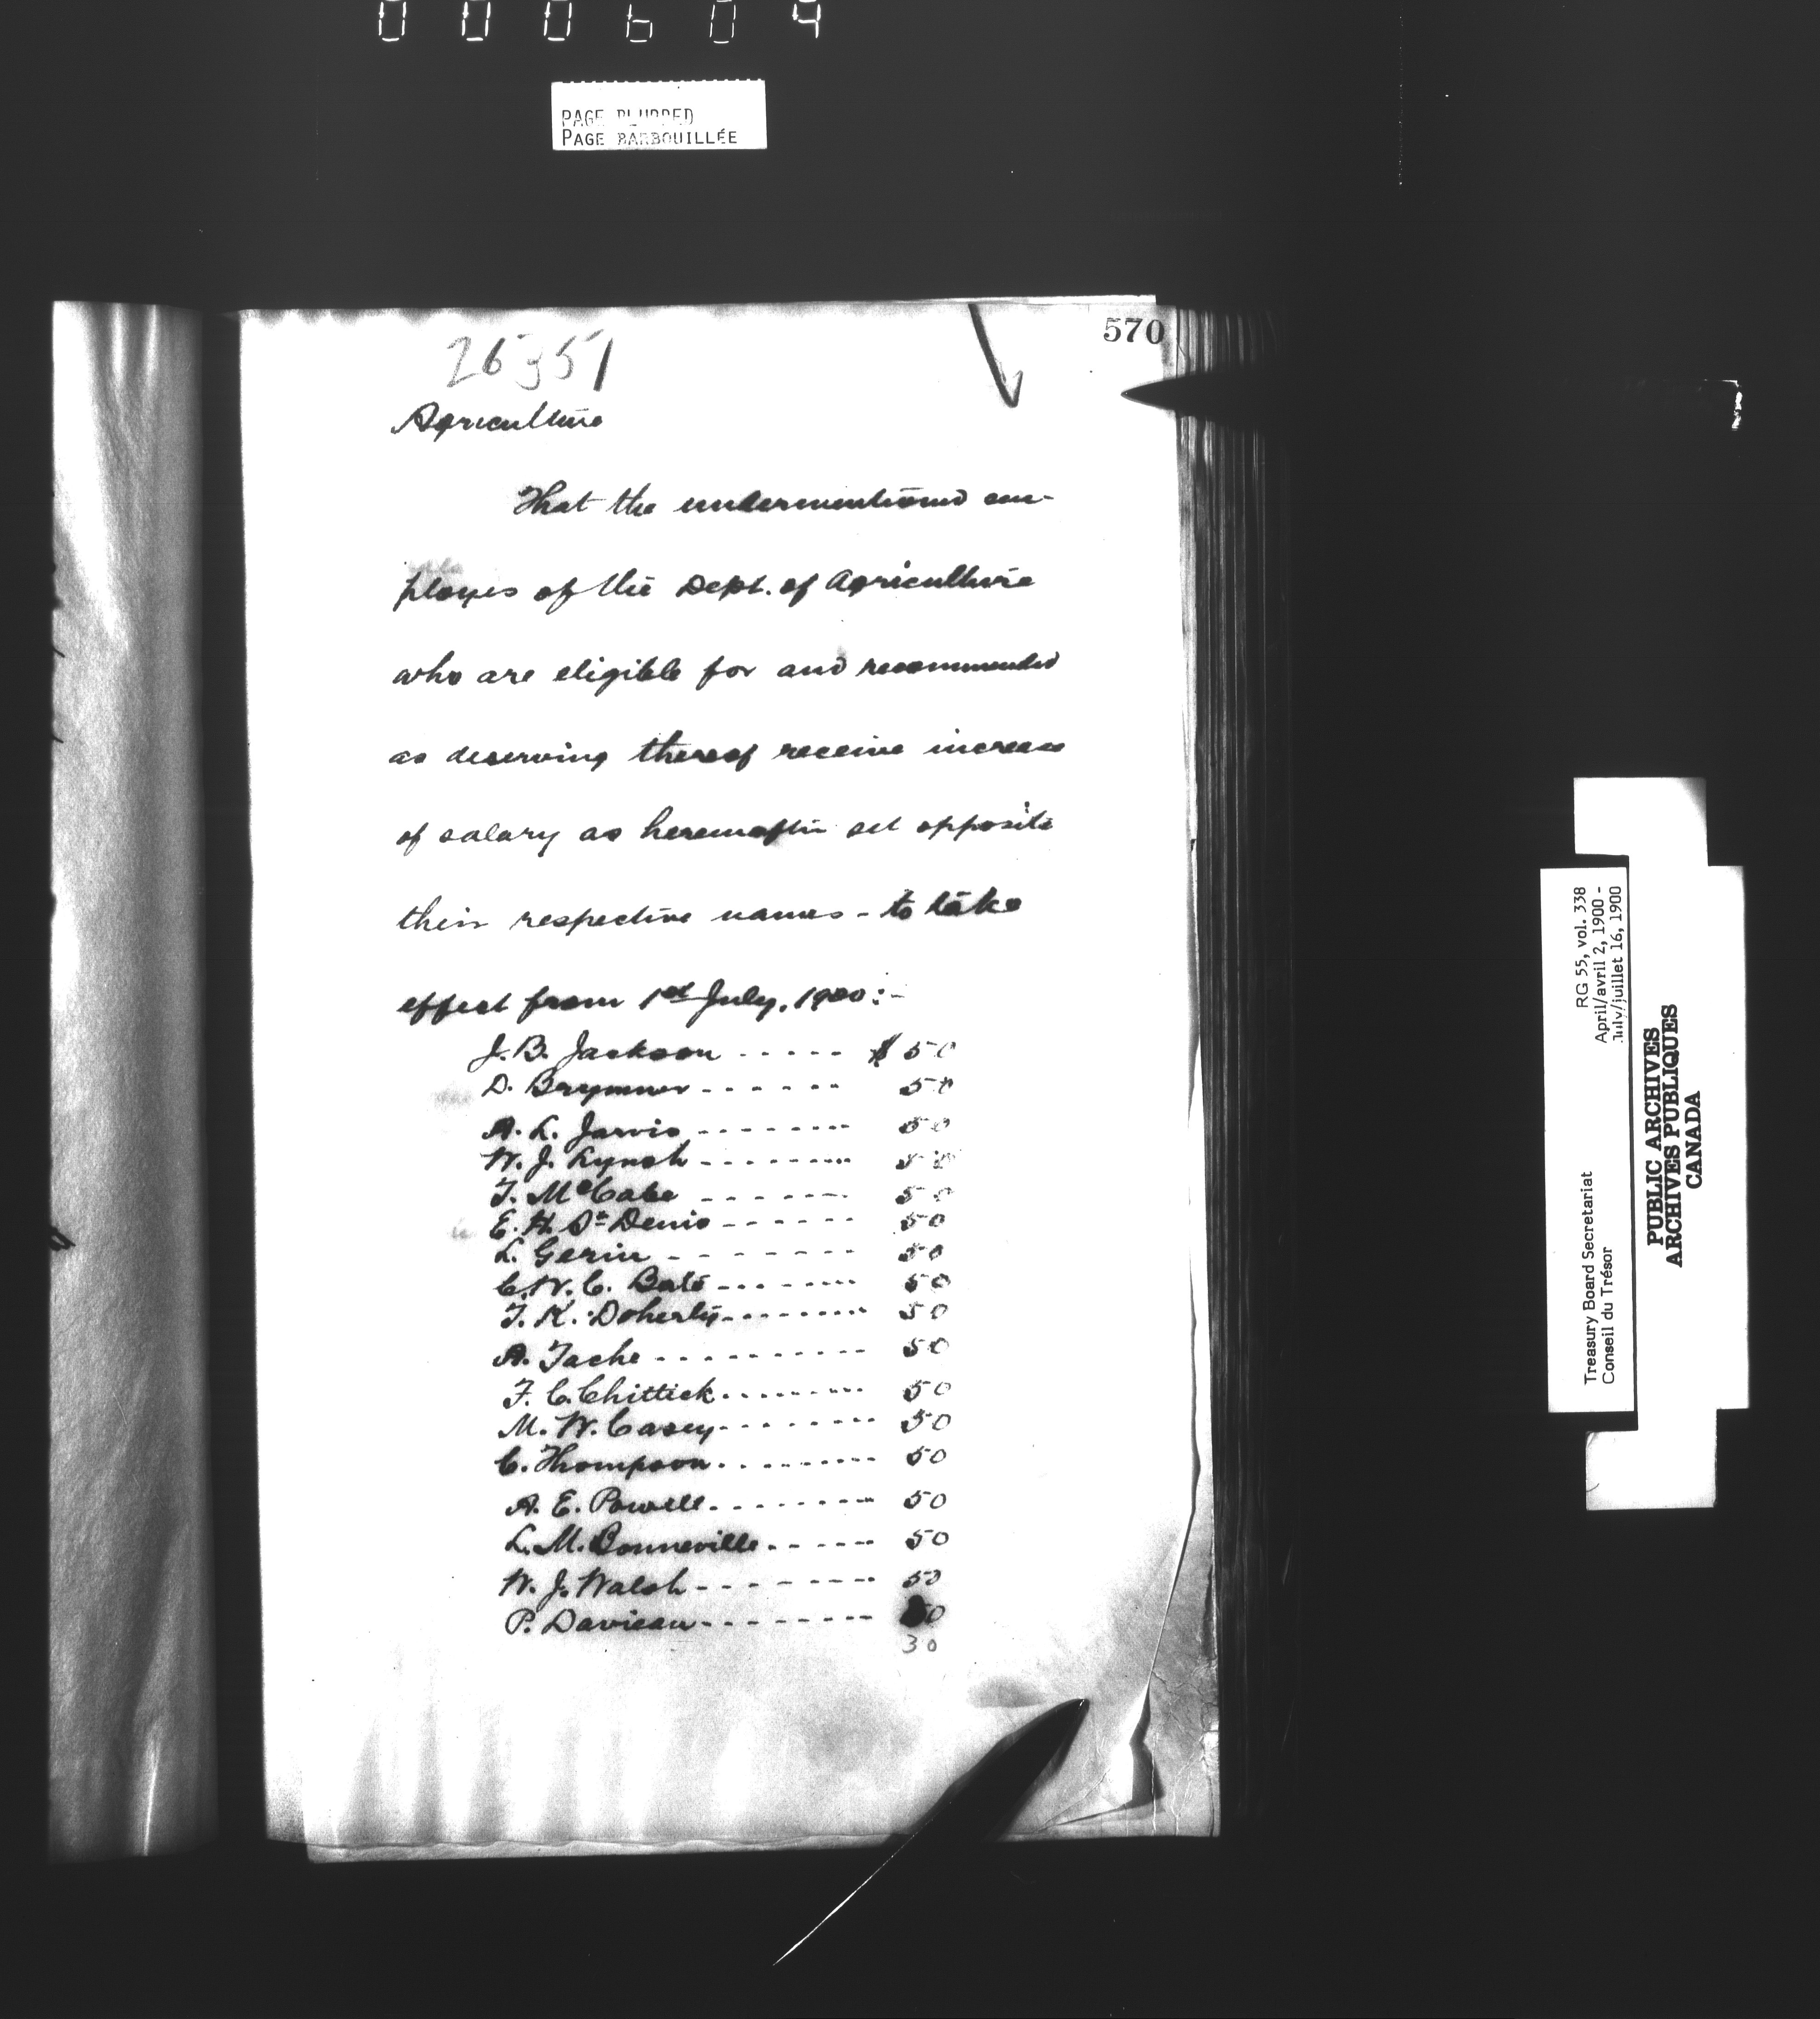 000604
PAGE BLURRED
PAGE BARBOUILLÉE
570
26351
Agriculture
That the undermentioned em-
ployes of the Dept. of Agriculture
who are eligible for and recommended
as deserving thereof receive increase
of salary as hereinafter set opposite
their respective names - to take
effect from 1st July, 1900:-
J. B. Jackson ----- $50
D. Brymner ------- 50
A. L. Jarvis -------- 50
W. J. Lynch -------- 50
T. McCabe ------- 50
E. H. St Denis ------ 50
L. Gerin ------- 50
C. W. C. Bate ------- 50
T. K. Doherty -------- 50
A. Tache ---------- 50
F. C. Chittick -------- 50
M. W. Casey -------- 50
C. Thompson --------- 50
A. E. Powell --------- 50
L. M. Bonneville ------ 50
W. J. Walsh -------- 50
P. Davieau -------- 50
30
RG 55, vol. 338
April/avril 2, 1900 -
July/juillet 16, 1900
Treasury Board Secretariat
Conseil du Trésor
PUBLIC ARCHIVES
ARCHIVES PUBLIQUES
CANADA